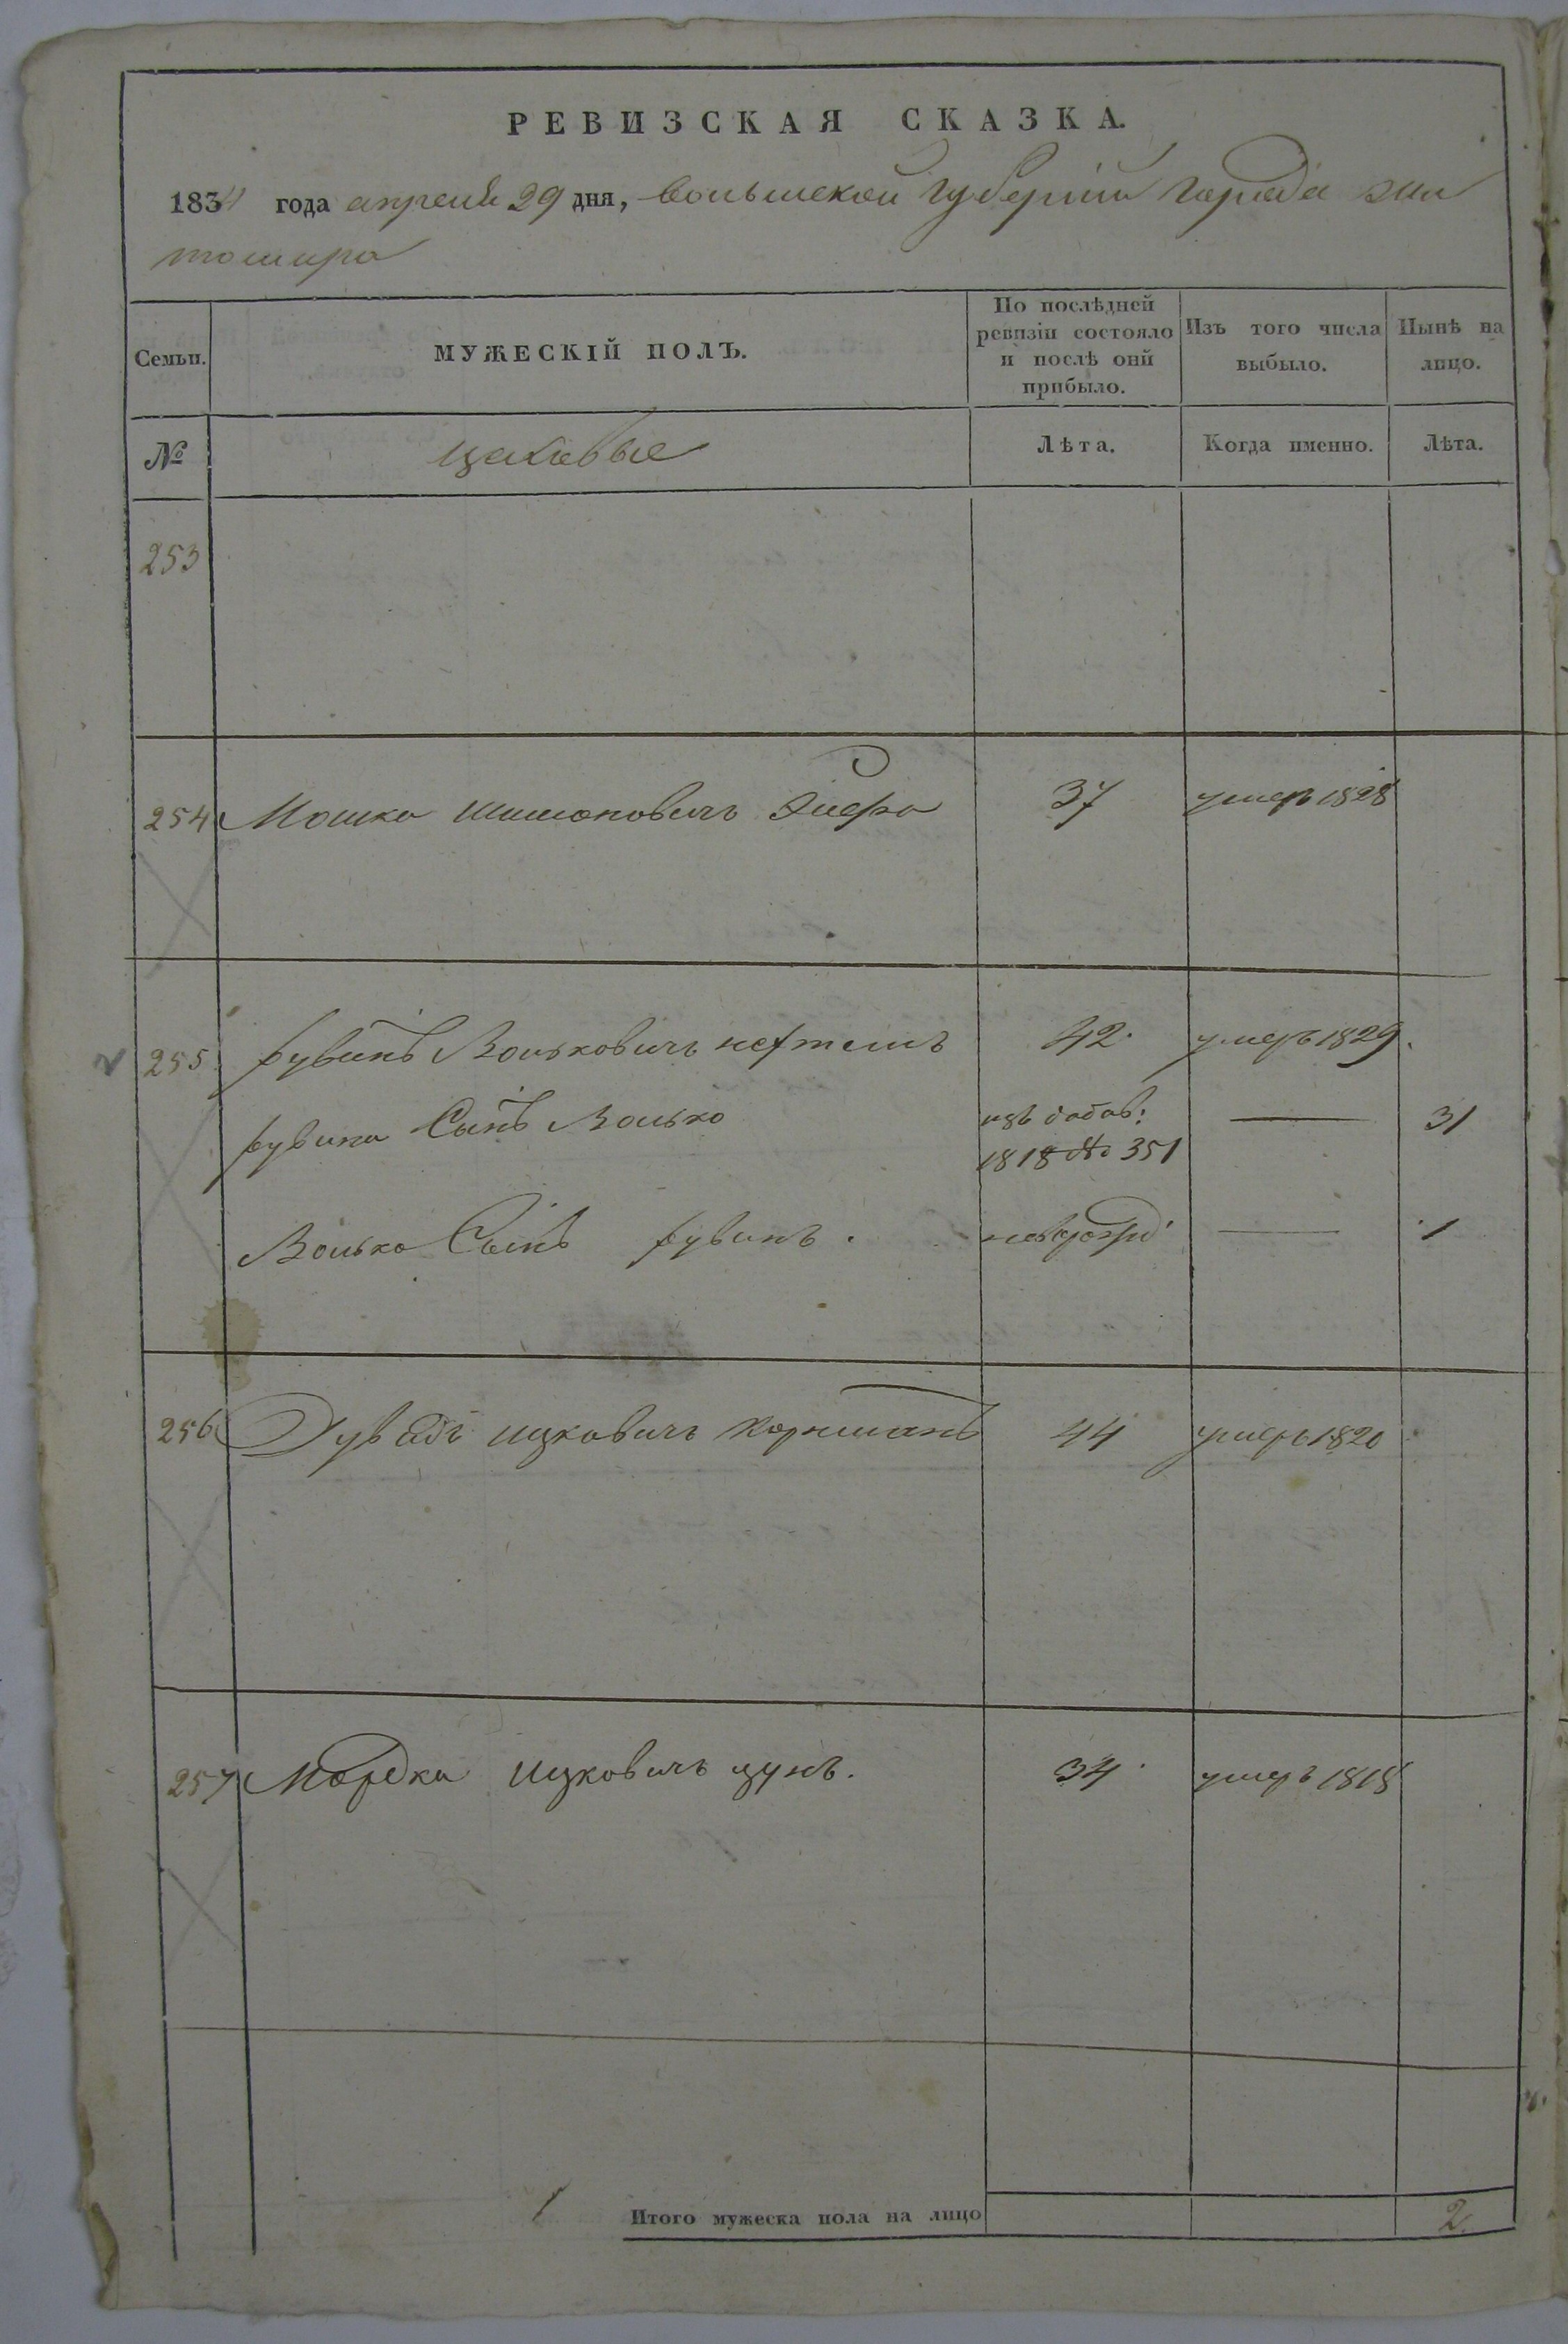 РЕВИЗСКАЯ СКАЗКА.
1834 года апреля 29 дня, волынской губернии города жи
томира
Семьи.
МУЖЕСКІЙ ПОЛЪ.
По послѣдней ревизіи состояло и послѣ оній прибыло.
Изъ того числа выбыло.
Нынѣ на лицо.
№
цеховые
Лѣта.
Когда именно.
Лѣта.
253
254 Мошко Шимоновичъ 37 умеръ 1828
255 рувинъ Волькович 42 умеръ 1829.
рувина Сынъ Волько изъ добав: 1818 № 351 — 31
Волько Сынъ рувинъ. новорожд — 1
256 Дувидъ ицковичъ 44 умеръ 1820
257 Мордко ицковичъ цунъ. 34 умеръ 1818
Итого мужеска пола на лицо 2.